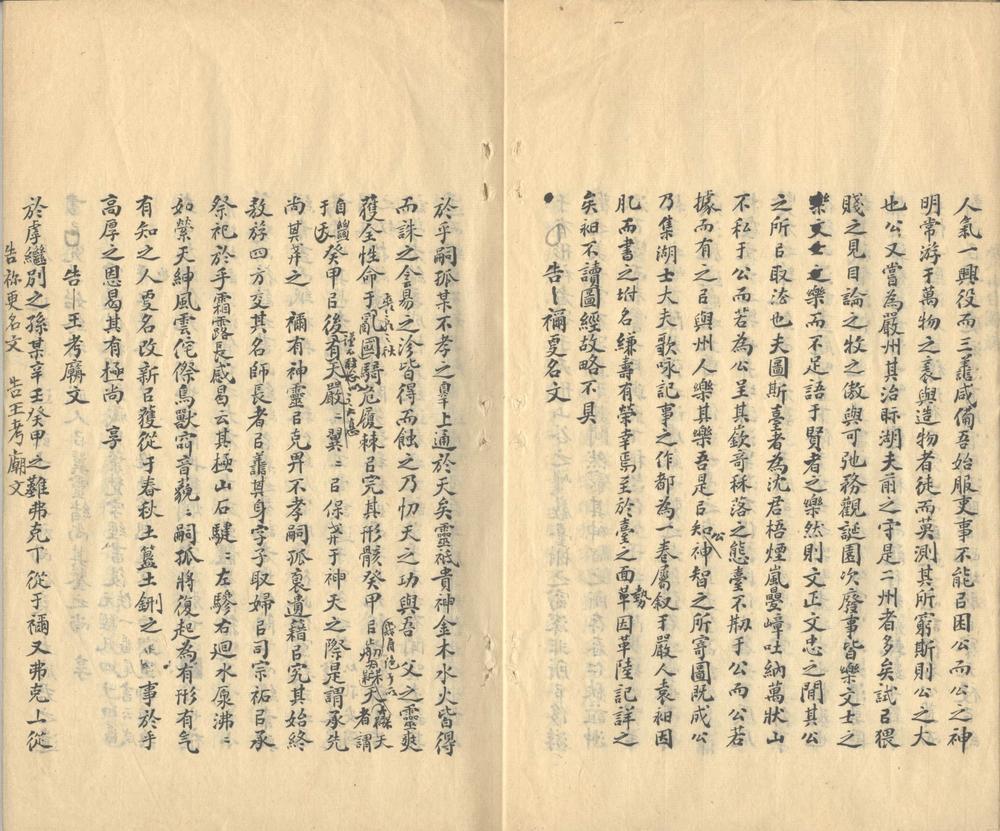 人氣一興役而三蠹咸備吾始服吏事不能㠯困公而公之神
明常游于萬物之表與造物者徒而英測其所窮斯則公之大
也公又嘗為嚴州其治眎湖夫前之守是二州者多矣試㠯猥
賤之見目論之牧之傲與可弛務觀誕園次廢事皆樂文士之
樂文士之樂而不足語于賢者之樂然則文正文忠之閒其公
之所㠯取法也夫圖斯臺者為沈君梧煙嵐疊嶂吐納萬狀山
不私于公而若為公呈其嶔奇秝落之態臺不勒于公而公若
據而有之㠯與州人樂其樂吾是㠯知公神智之所寄圖既成公
乃集湖士大夫歌咏記事之作都為一卷屬叙王嚴人袁昶因
肊而書之坿名縑壽有榮幸焉至於臺之面勢革因革陸記詳之
矣昶不讀圖經故略不具
告禰更名文
於乎嗣孤某不孝之辠上通於天矣靈祇貴神金木水火皆得
而誅之侌昜之沴皆得而蝕之乃忉天之功與吾父之靈爽
獲全性命于亂國騎危履棘㠯完其形骸癸甲㠯
癸甲㠯後有天嚴二翼二㠯保于神天之際是謂承先
尚其之禰有神靈㠯克畀不孝嗣孤裒遺籍㠯究其始終
敖游四方交其名師長者㠯蠹其身字子取婦㠯司宗祏㠯承
祭祀於乎霜露長感曷云其極山石騝二左驂右迴水原沸二
如縈天紳風雲侘傺鳥獸窅音藐二嗣孤將復起為有形有气
有知之人更名改新㠯獲從于春秋土簋土鉶之事於乎
高厚之恩曷其有極尚享
告王考廟文
於虖繼別之孫某辛壬癸甲之難弗克下從于禰又弗克上從
告祢更名文　告王考廟文